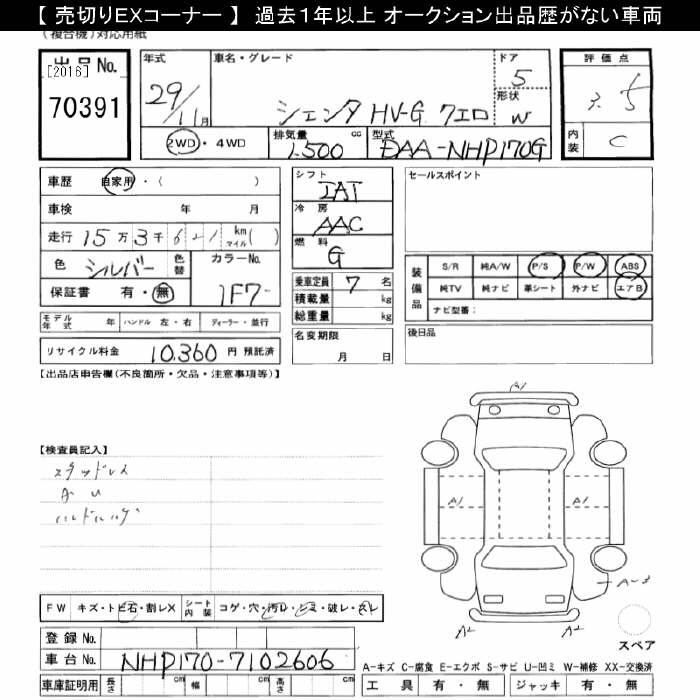 【 売切りEXコーナー 】 過去1年以上 オークション出品歴がない車両
(複合機)対応用紙
出品No.
[2016]
70391
年式
29/11月
車名・グレード
シエンタ HV-G 7エロ
ドア
5
形状
W
評価点
3.5
内装
C
2WD・4WD
排気量
1,500 cc
型式
DAA-NHP170G
車歴 自家用・( )
車検 年 月
走行 15万3千621 km マイル( )
色 シルバー
色替
カラーNo.
1F7-
保証書 有・無
シフト
IAT
冷房
AAC
燃料
G
乗車定員 7 名
積載量 kg
総重量 kg
セールスポイント
装備品
S/R 純A/W P/S P/W ABS
純TV 純ナビ 革シート 外ナビ エアB
ナビ型番:
モデル年式 年 ハンドル 左・右 ディーラー・並行
名変期限
月 日
後日品
リサイクル料金 10,360 円 預託済
【出品店申告欄(不良箇所・欠品・注意事項等)】
【検査員記入】
スタッドレス
A U
ハンドルハゲ
A1
A1
A1
A-3
A2
A2
スペア
FW キズ・トビ石・割レX
シート内装 コゲ・穴・汚レ・シミ・破レ・スレ
登録No.
車台No. NHP170-7102606
車庫証明用 長さ cm 幅 cm 高さ cm
A-キズ C-腐食 E-エクボ S-サビ U-凹ミ W-補修 XX-交換済
工具 有・無 ジャッキ 有・無